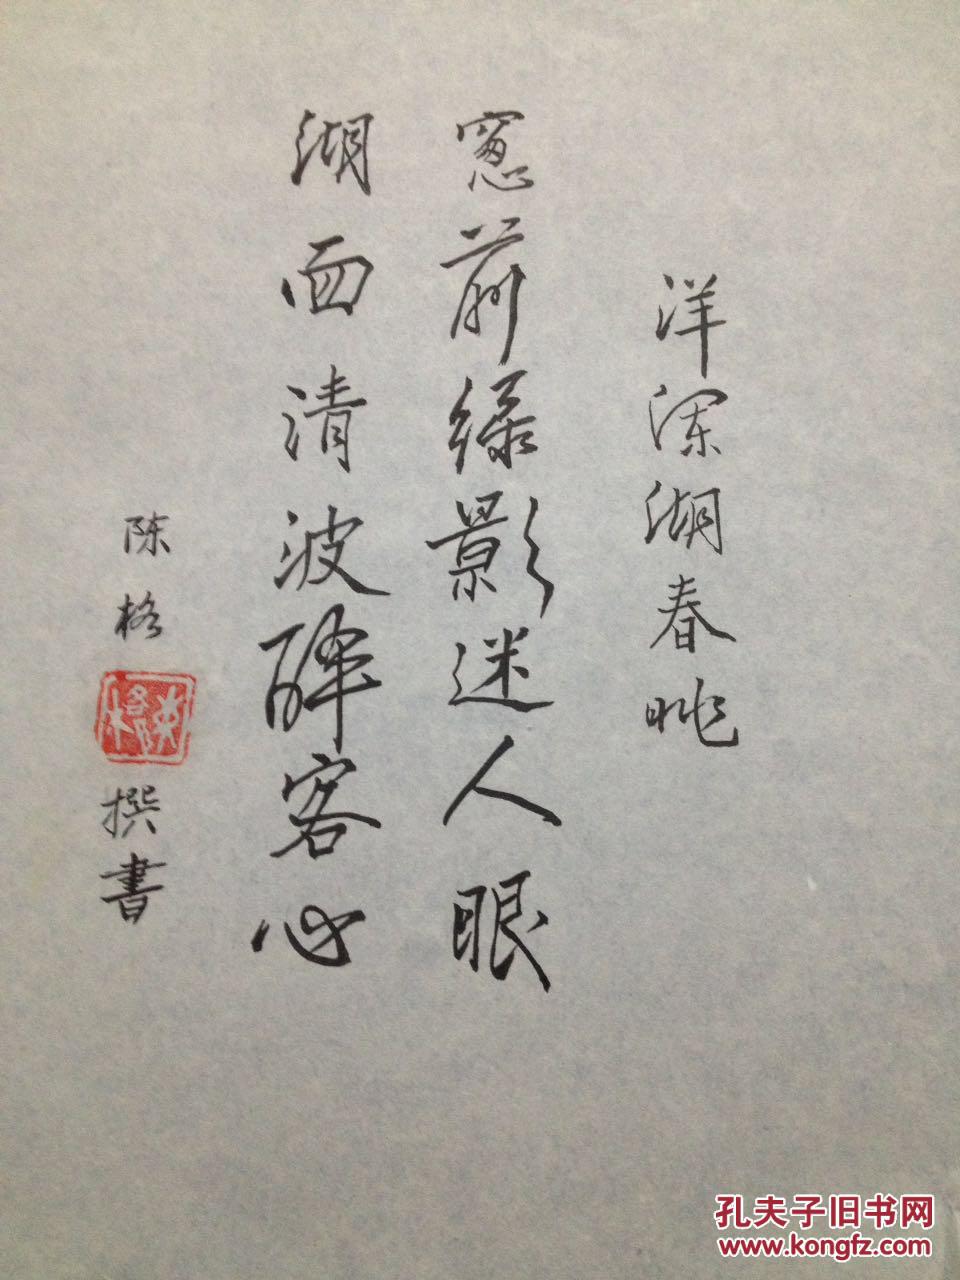 洋澜湖春眺
窻前綠影迷人眼
湖面清波醉客心
陈格
撰書
孔夫子旧书网
www.kongfz.com